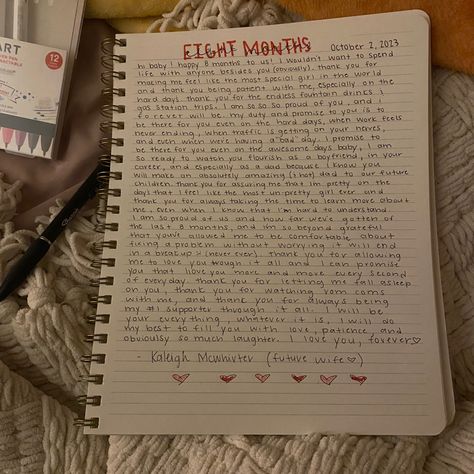 EIGHT MONTHS
October 2, 2023
hi baby! happy 8 months to us! I wouldn't want to spend
life with anyone besides you (obviously). thank you for
making me feel like the most special girl in the world
and thank you being patient with me, especially on the
hard days. thank you for the endless fountain drinks &
gas station trips. I am so so so proud of you, and I
forever will be. my duty and promise to you is to
be there for you even on the hard days, when work feels
never ending, when traffic is getting on your nerves,
and even when were having a bad day. I promise to
be there for you even on the awesome days baby, I am
so ready to watch you flourish as a boyfriend, in your
career, and especially as a dad because I know you
will make an absolutely amazing (& hot) dad to our future
children. thank you for assuring me that im pretty on the
days that I feel like the most un-pretty girl ever. and
thank you for always taking the time to learn more about
me, even when I know that I'm hard to understand.
I am so proud of us and how far we've gotten of
the last 8 months, and im so beyond grateful
that you've allowed me to be comfortable about
fixing a problem without worrying it will end
in a breakup (never ever). thank you for allowing
me to love you through it all and I can promise
you that I love you more and more every second
of everyday. thank you for letting me fall asleep
on you, thank you for watching rom coms
with me, and thank you for always being
my #1 supporter through it all. I will be
your everything, whatever it is, I will do
my best to fill you with love, patience, and
obviously so much laughter. I love you, forever♡
- Kaleigh Mcwhirter (future wife♡)
ART
12